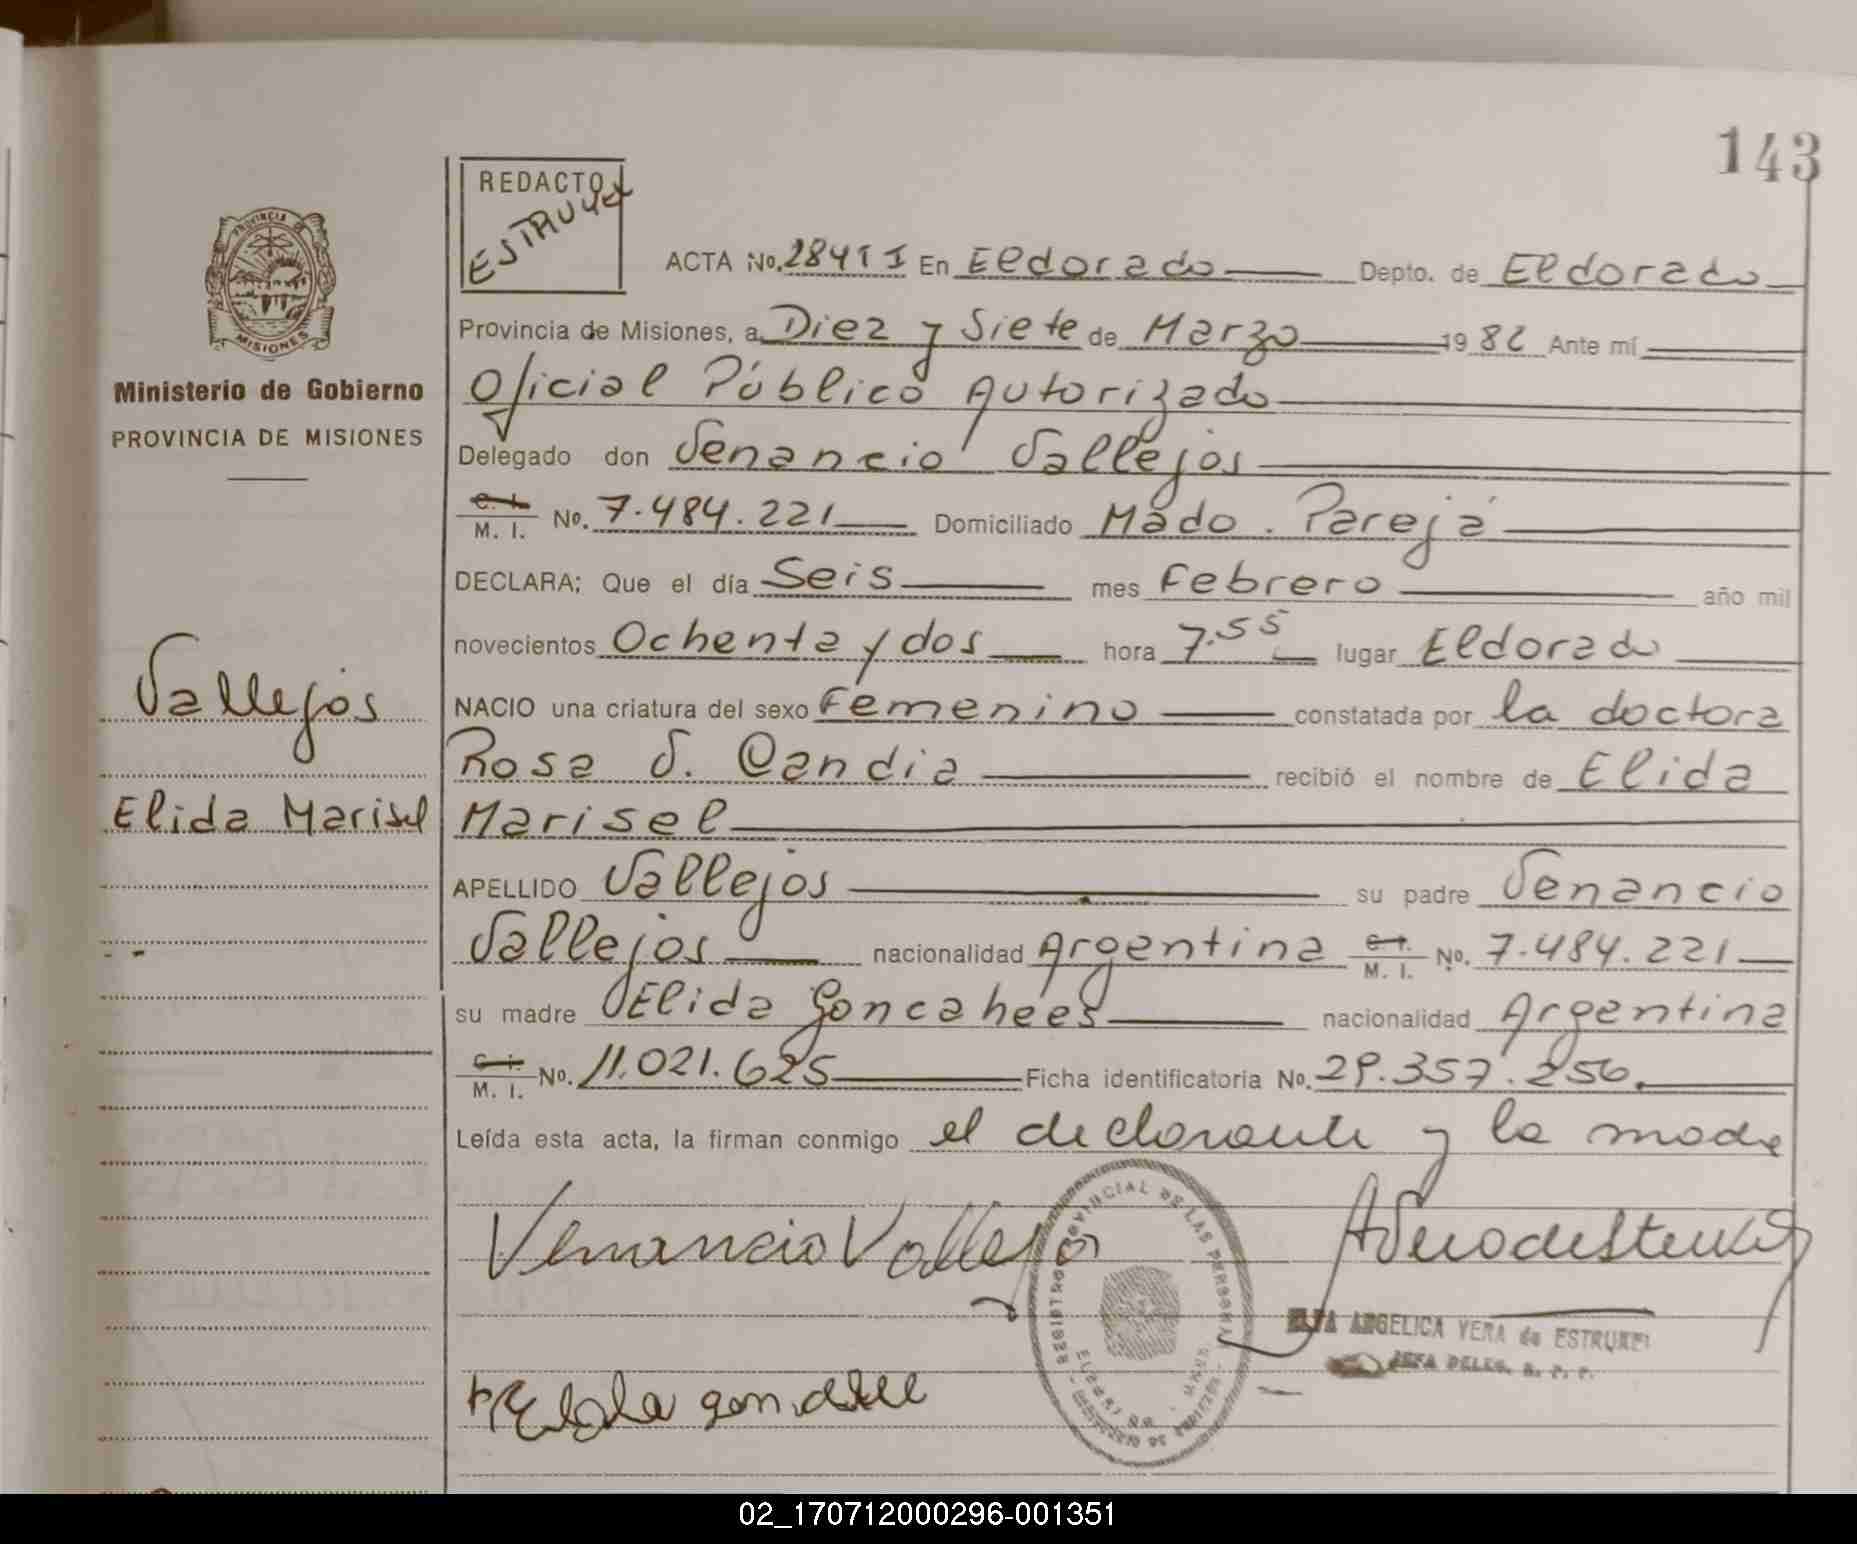 143
REDACTO
ACTA No. 284 II En Eldorado Depto. de Eldorado
Provincia de Misiones, a Diez y Siete de Marzo 1982 Ante mí
Oficial Público Autorizado
Delegado don Venancio Vallejos
C. I. M. I. No. 7.484.221 Domiciliado Mado. Parejá
DECLARA; Que el día Seis mes Febrero año mil
novecientos Ochenta y dos hora 7.55 lugar Eldorado
NACIO una criatura del sexo Femenino constatada por la doctora
Rosa V. Candia recibió el nombre de Elida
Marisel
APELLIDO Vallejos su padre Venancio
Vallejos nacionalidad Argentina C. I. M. I. No. 7.484.221
su madre Elida nacionalidad Argentina
C. I. M. I. No. 11.021.625 Ficha identificatoria No. 29.357.256.
Leída esta acta, la firman conmigo el declarante y la madre
Venancio Vallejos
ANGELICA VERA de ESTRUKEL
JEFA DELEG. R. P. P.
REGISTRO PROVINCIAL DE LAS PERSONAS
PROVINCIA DE
MISIONES
Ministerio de Gobierno
PROVINCIA DE MISIONES
Vallejos
Elida Marisel
02_170712000296-001351